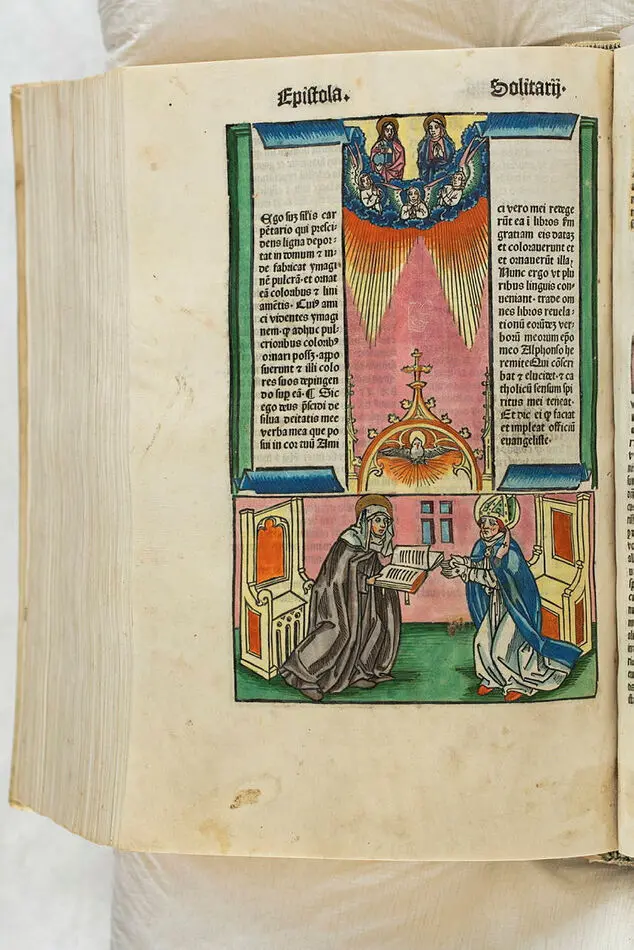 Epistola.
Solitarij.
Ego suꝫ sil'is car
pētario qui presci-
dens ligna depor-
tat in domum & in-
de fabricat ymagi-
nē pulcrā. et ornat
eā coloribus & lini
amētis. Cuiꝰ ami
ci videntes ymagi
nem. ꝙ adhuc pul-
crioribus coloribꝰ
ornari posset. appo
suerunt & illi colo
res suos depingen
do sup eā. ¶ Sic
ego deus p̄scidi de
silua deitatis mee
verba mea que po
sui in cor tuū Ami
ci vero mei redege
rūt ea ī libros fm̄
gratiam eis dataꝫ
et colorauerunt et
et ornauerunt illa.
Nunc ergo vt plu
ribus linguis con-
ueniant. trade om
nes libros reuela-
tionū eorūdeꝫ ver-
borū meorum ep̄o
meo Alphonso he
remite Qui cōscri
bat & elucidet. & ca
tholicū sensum spi
ritus mei teneat.
Et dic ei ꝙ faciat
et impleat officiū
euangeliste.